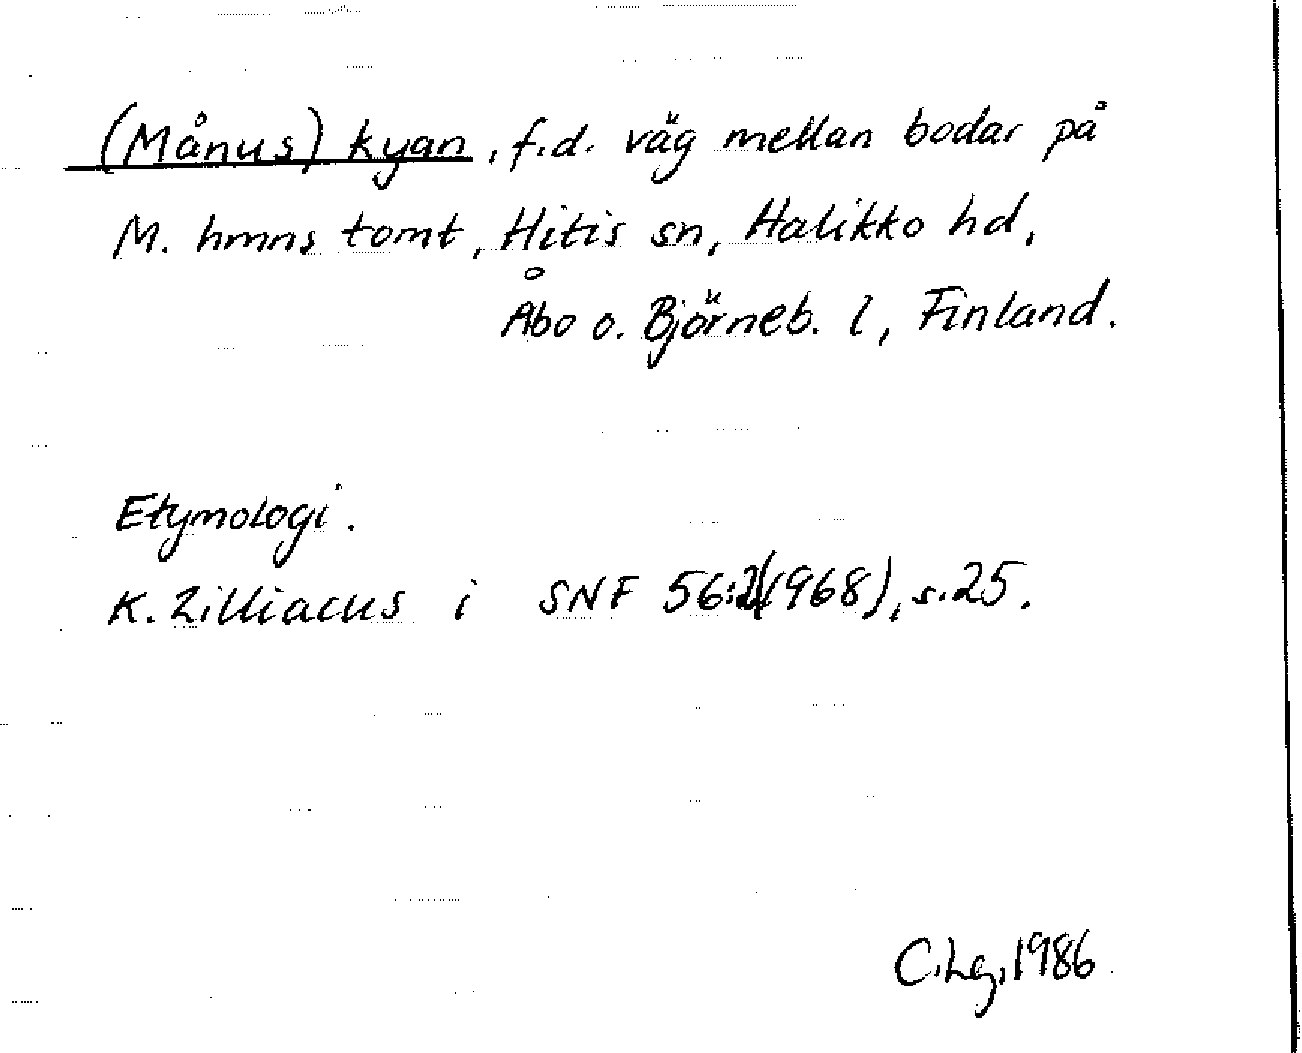 (Månus) kyan, f.d. väg mellan bodar på
M. hmns tomt, Hitis sn, Halikko hd,
Åbo o. Björneb. l, Finland.
Etymologi.
K. Zilliacus i SNF 56:2(1968), s.25.
C.Lg,1986